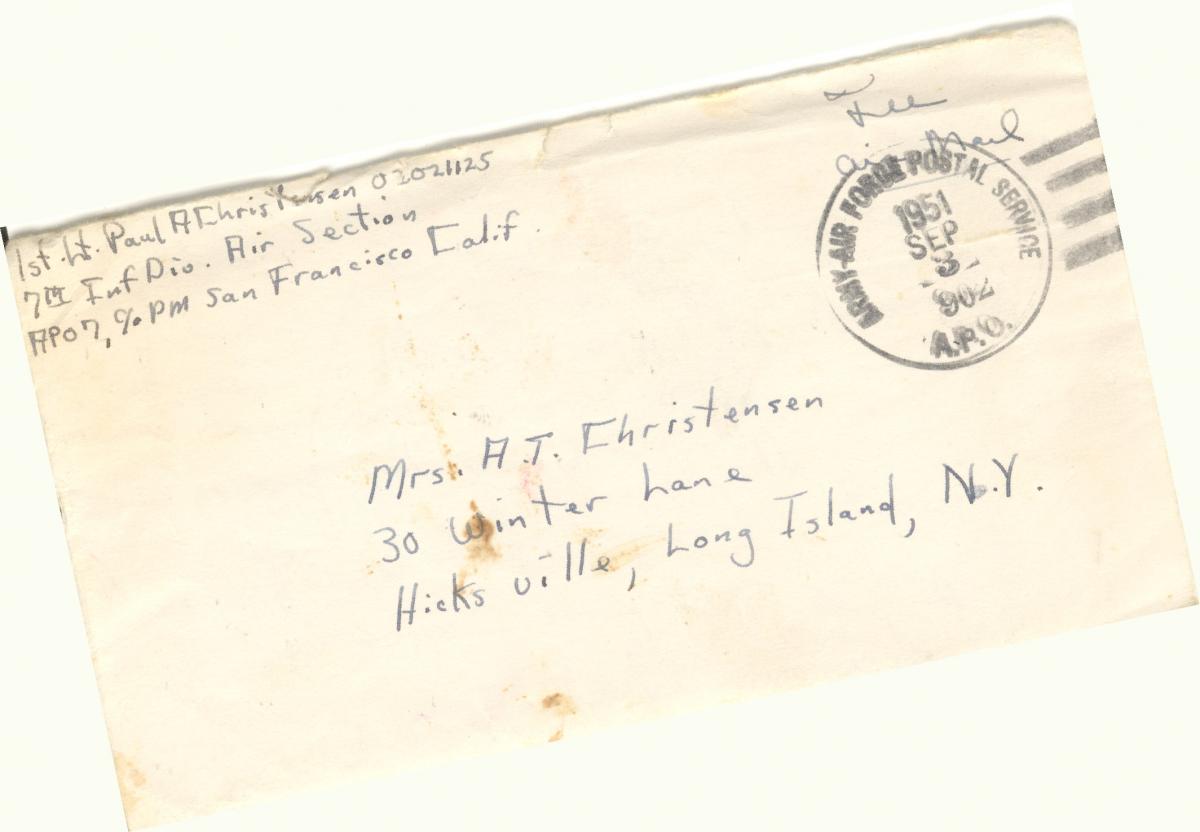 1st. Lt. Paul A Christensen 02021125
7TH Inf Div. Air Section
APO7, c/o PM San Francisco Calif.
Free
Air Mail
ARMY-AIR FORCE POSTAL SERVICE
1951
SEP
3
902
A.P.O.
Mrs. A.T. Christensen
30 Winter Lane
Hicksville, Long Island, N.Y.